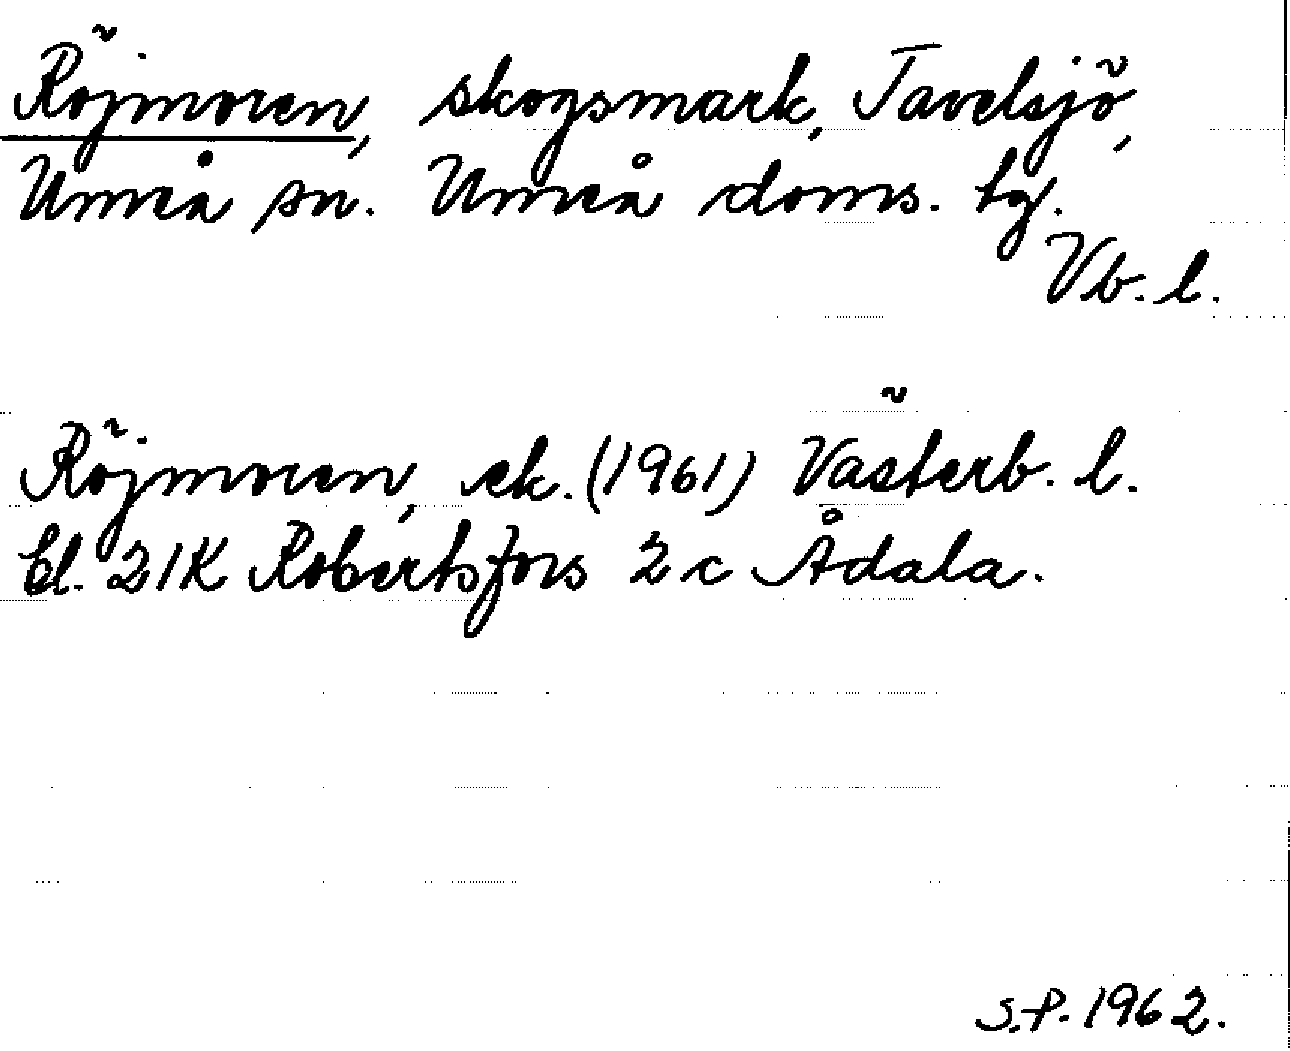 Röjmoren, skogsmark, Tavelsjö,
Umeå sn. Umeå doms. tg.
Vb. l.
Röjmoren, ek. (1961) Västerb. l.
bl. 21K Robertsfors 2 c Ådala.
S.P. 1962.